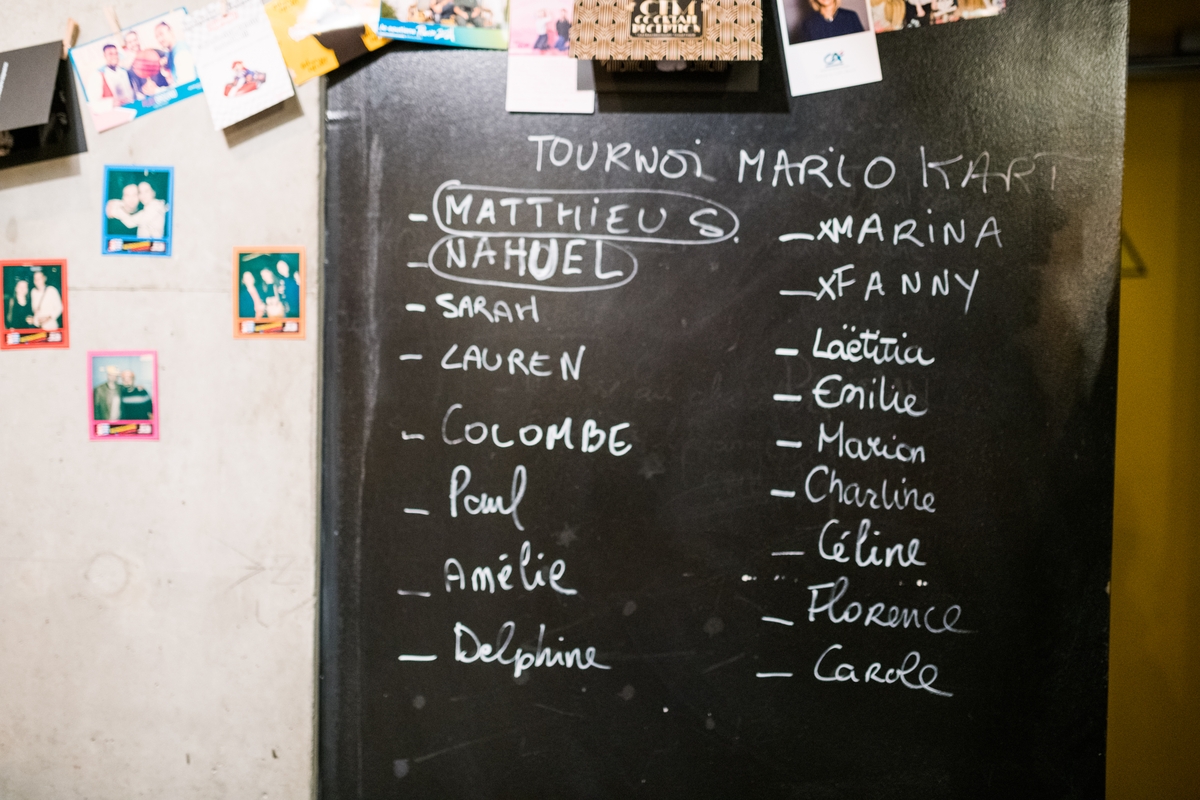 CTM
COCKTAIL
RECEPTION
CA
TOURNOi MARiO KART
– MATTHiEU S.
– NAHUEL
– SARAH
– LAUREN
– COLOMBE
– Paul
– Amélie
– Delphine
– xMARiNA
– xFANNY
– Laëtitia
– Emilie
– Marion
– Charline
– Céline
– Florence
– Carole